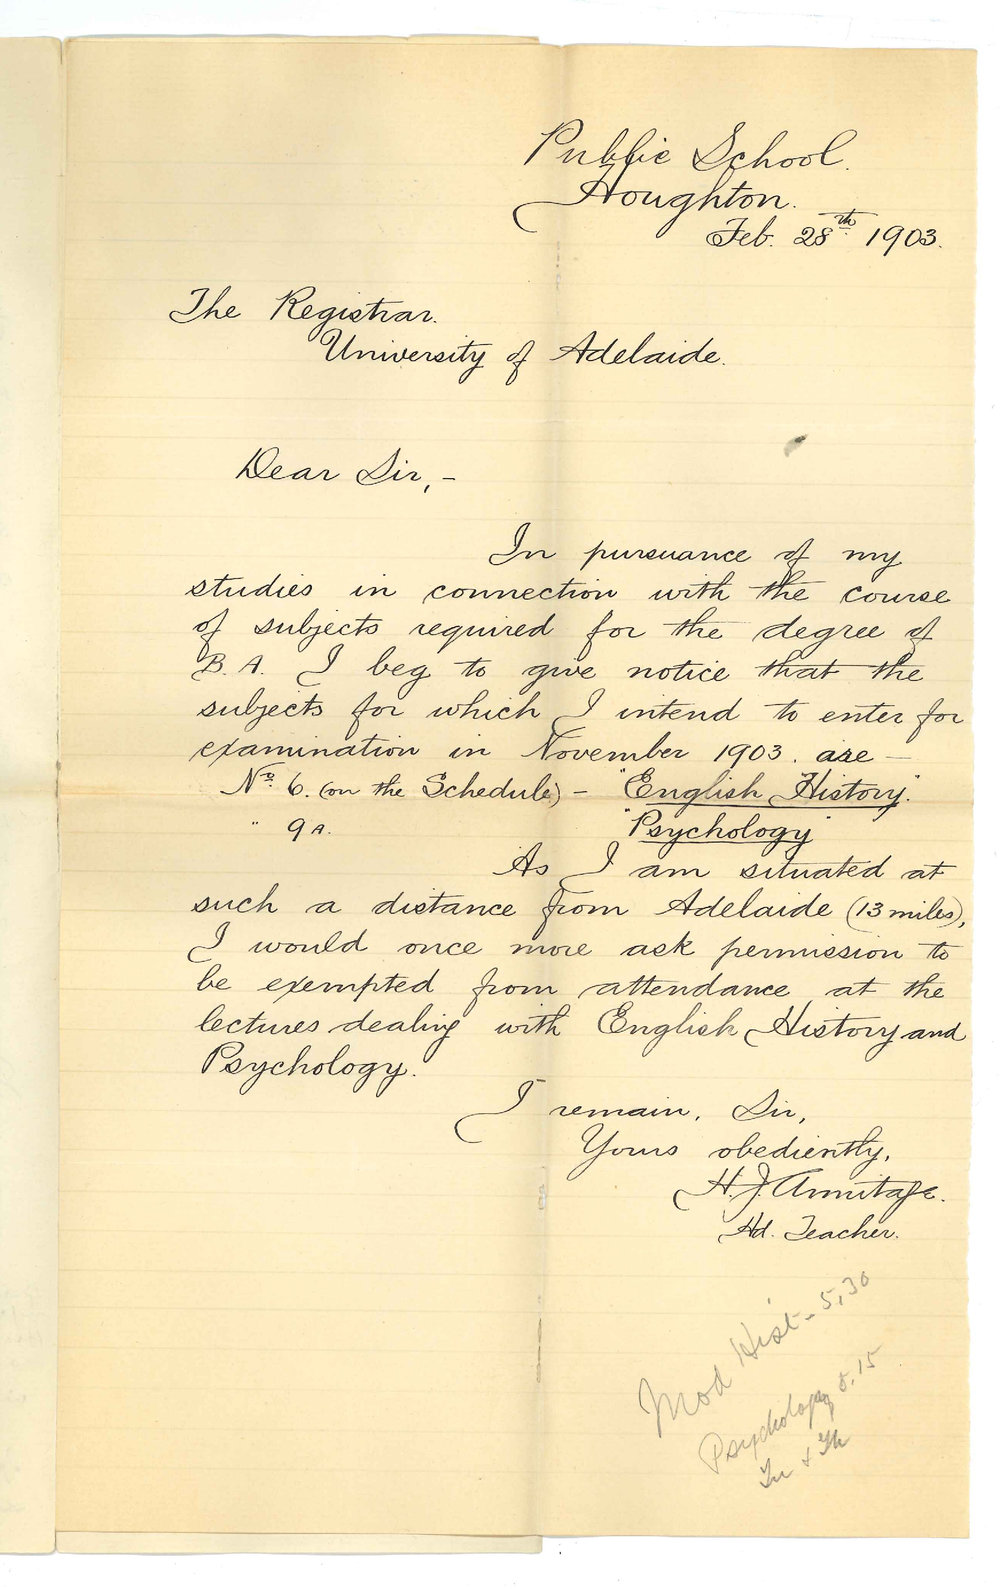 Public School.
Houghton.
Feb. 28th 1903.
The Registrar.
University of Adelaide.
Dear Sir,-
In pursuance of my
studies in connection with the course
of subjects required for the degree of
B.A. I beg to give notice that the
subjects for which I intend to enter for
examination in November 1903. are —
No. 6. (on the Schedule) - "English History".
" 9A. "Psychology"
As I am situated at
such a distance from Adelaide (13 miles),
I would once more ask permission to
be exempted from attendance at the
lectures dealing with English History and
Psychology.
I remain, Sir,
Yours obediently,
H. J. Armitage.
Hd. Teacher.
Mod Hist - 5.30
Psychology 8.15
Tu & Th